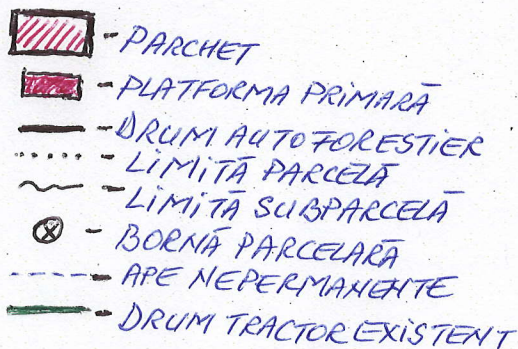 - PARCHET
- PLATFORMA PRIMARĂ
- DRUM AUTOFORESTIER
- LIMITĂ PARCELĂ
- LIMITĂ SUBPARCELĂ
- BORNĂ PARCELARĂ
- APE NEPERMANENTE
- DRUM TRACTOR EXISTENT